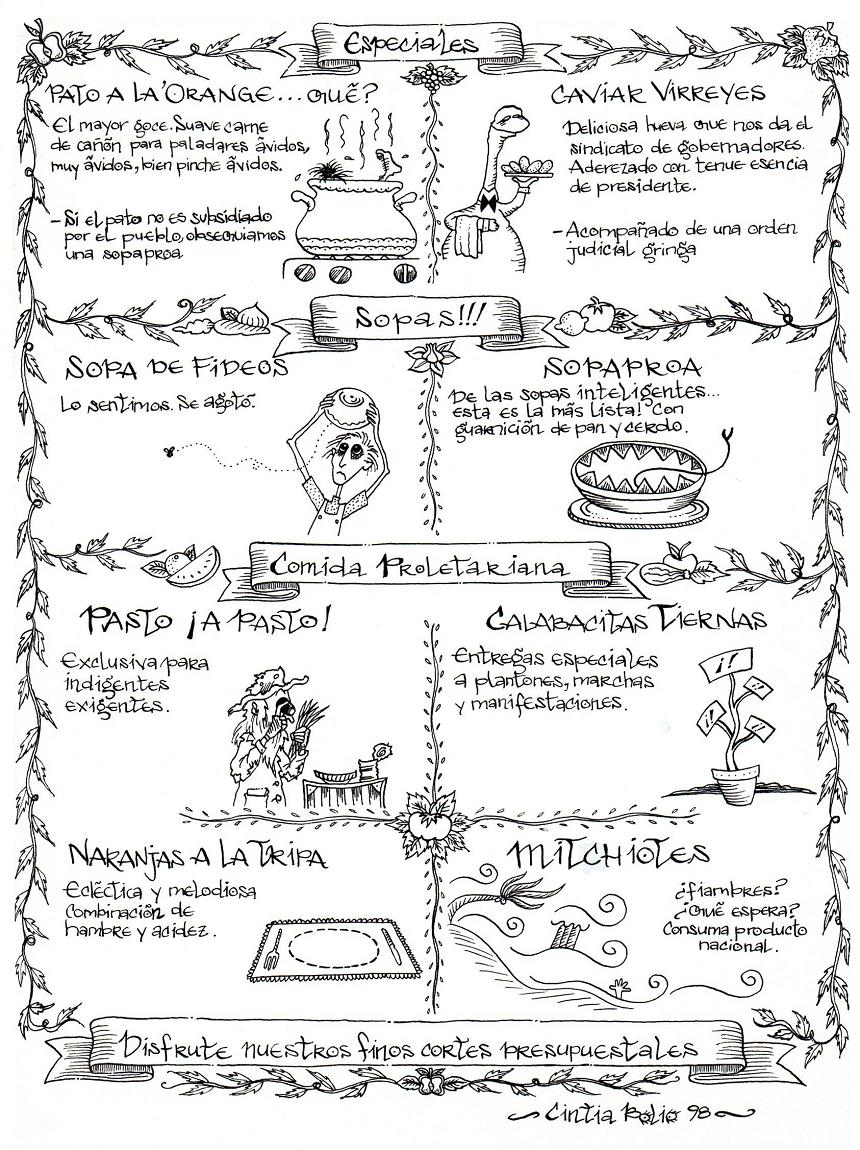 Especiales
Pato a la'Orange...qué?
El mayor goce. Suave carne
de cañón para paladares ávidos,
muy ávidos, bien pinche ávidos.
- Si el pato no es subsidiado
por el pueblo, obsequiamos
una sopaproa
Caviar Virreyes
Deliciosa hueva que nos da el
sindicato de gobernadores.
Aderezado con tenue esencia
de presidente.
- Acompañado de una orden
judicial gringa
Sopas!!!
Sopa de Fideos
Lo sentimos. Se agotó.
Sopaproa
De las sopas inteligentes...
esta es la más lista! Con
guarnición de pan y cerdo.
Comida Proletariana
Pasto ¡a pasto!
Exclusiva para
indigentes
exigentes.
Calabacitas Tiernas
Entregas especiales
a plantones, marchas
y manifestaciones.
¡!
¡!
¡!
Naranjas a la tripa
Ecléctica y melodiosa
combinación de
hambre y acidez.
Mitchiotes
¿fiambres?
¿Qué espera?
Consuma producto
nacional.
Disfrute nuestros finos cortes presupuestales
Cintia Bolio 98